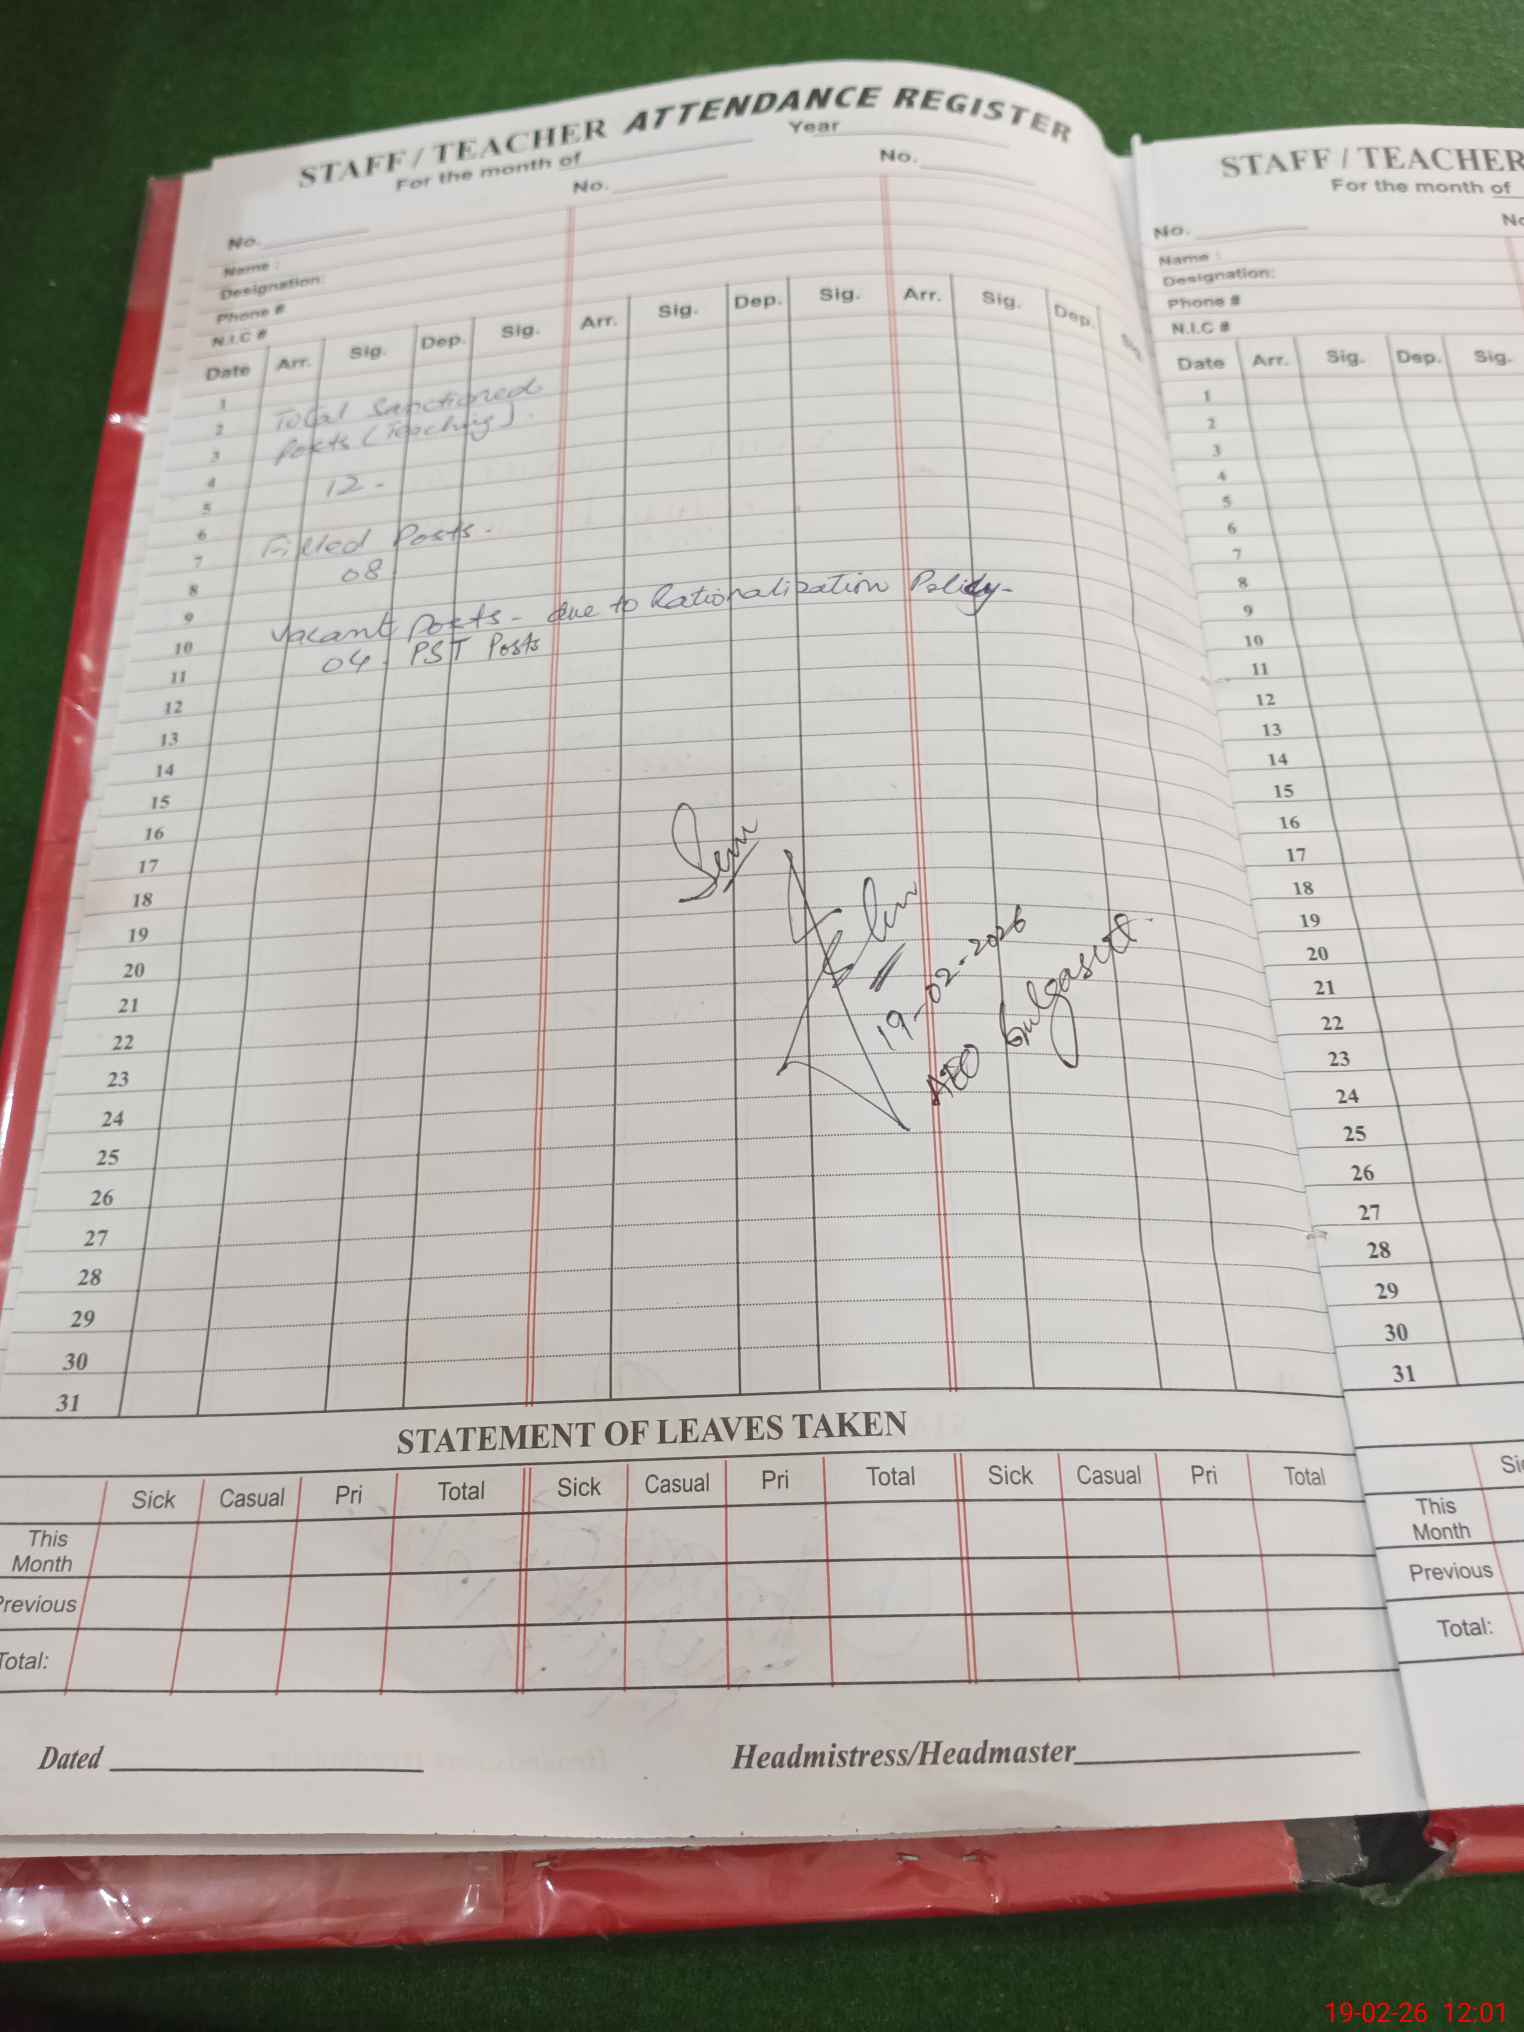 STAFF / TEACHER ATTENDANCE REGISTER
For the month of Year
No. No. No.
Name :
Designation:
Phone #
N.I.C #
Date Arr. Sig. Dep. Sig. Arr. Sig. Dep. Sig. Arr. Sig. Dep. Sig
1
2 Total Sanctioned
3 Posts (Teaching).
4
5 12 -
6
7 Filled Posts -
8 08
9
10 Vacant Posts - due to Rationalization Policy -
11 04. PST Posts
12
13
14
15
16
17
18
19
20
21
22
23
24
25
26
27
28
29
30
31
Seen
19-02-2026
AEO Gulgasht.
STATEMENT OF LEAVES TAKEN
Sick Casual Pri Total Sick Casual Pri Total Sick Casual Pri Total
This
Month
Previous
Total:
Dated Headmistress/Headmaster
STAFF / TEACHER
For the month of
No. No
Name :
Designation:
Phone #
N.I.C #
Date Arr. Sig. Dep. Sig.
1
2
3
4
5
6
7
8
9
10
11
12
13
14
15
16
17
18
19
20
21
22
23
24
25
26
27
28
29
30
31
Si
This
Month
Previous
Total:
19-02-26 12:01